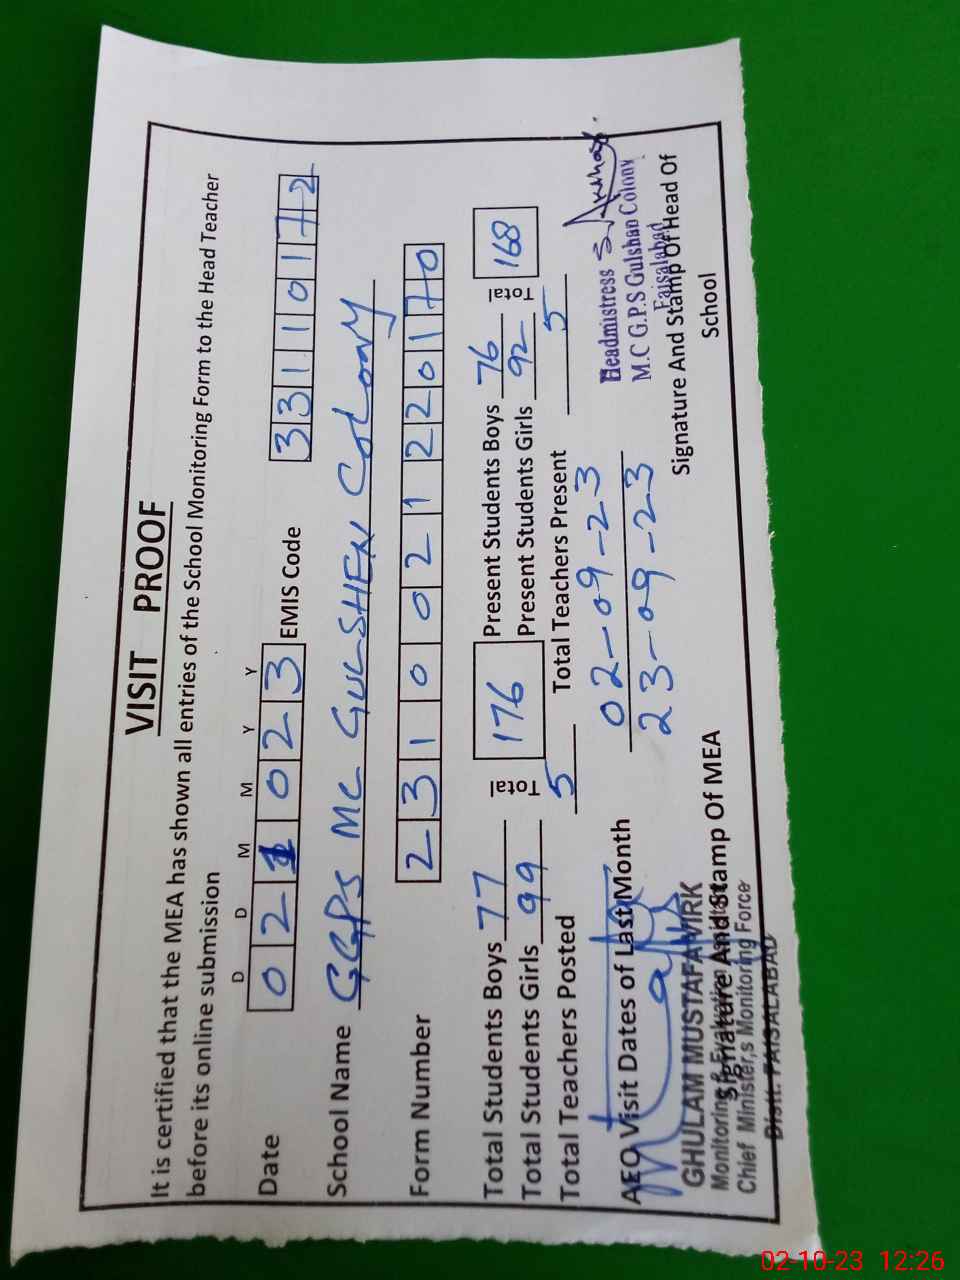 VISIT PROOF
It is certified that the MEA has shown all entries of the School Monitoring Form to the Head Teacher
before its online submission
D D M M Y Y
Date 0 2 1 0 2 3 EMIS Code 3 3 1 1 0 1 7 2
School Name GGPS MC GULSHEN COLONY
Form Number 2 3 1 0 0 2 1 2 2 0 1 7 0
Total Students Boys 77 Total 176 Present Students Boys 76 Total 168
Total Students Girls 99 Present Students Girls 92
Total Teachers Posted 5 Total Teachers Present 5
AEO Visit Dates of Last Month 02-09-23
23-09-23
Headmistress
M.C G.P.S Gulshan Colony
Faisalabad
Signature And Stamp Of Head Of
School
GHULAM MUSTAFA VIRK
Signature And Stamp Of MEA
Monitoring & Evaluation
Chief Minister,s Monitoring Force
Distt. FAISALABAD
02-10-23 12:26